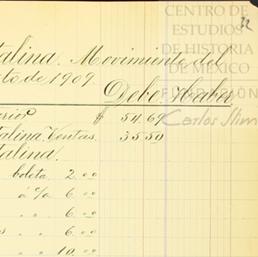 CENTRO DE
ESTUDIOS
DE HISTORIA
DE MÉXICO
FUNDACIÓN
Carlos Slim
32
talina. Movimiento del
to de 1909.
Debe. Haber
erior $ 54.69
talina Ventas. 35.50
talina.
boleta 2.00
á c/o 6.00
" " 6.00
s " " 6.00
" " 10.00